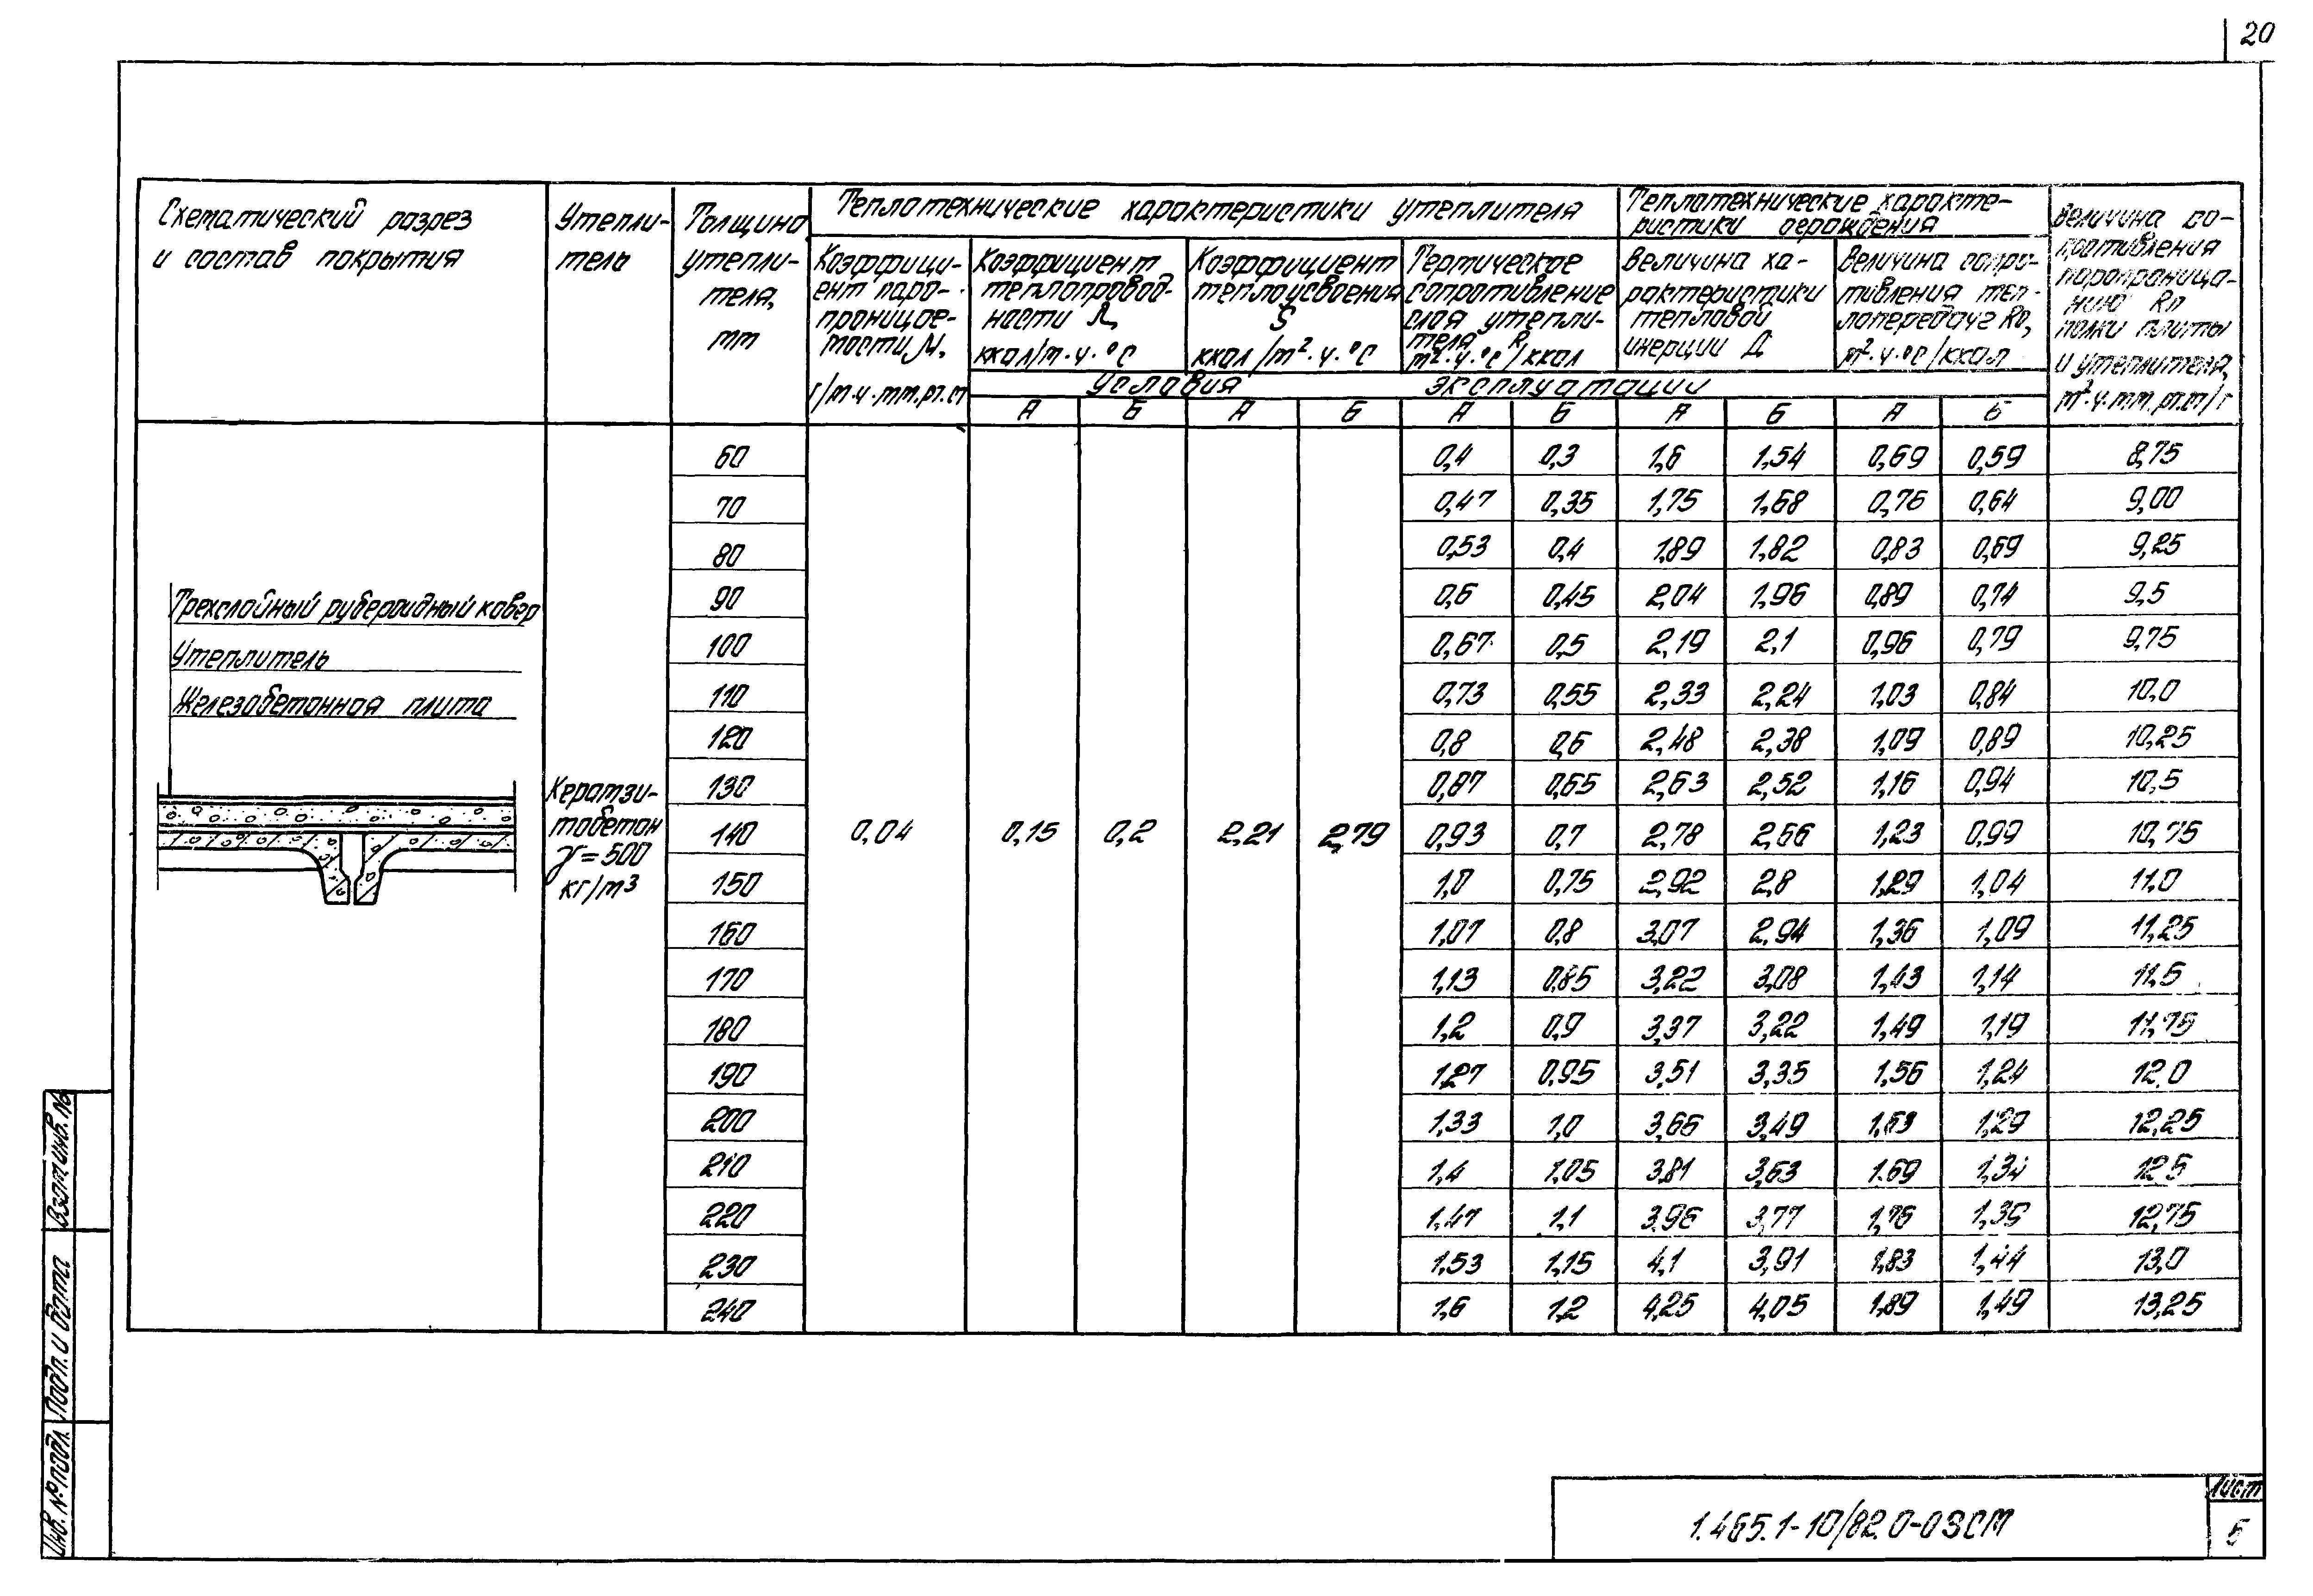 20
Схематический разрез
и состав покрытия
Утепли-
тель
Толщина
утепли-
теля,
мм
Теплотехнические характеристики утеплителя
Коэффици-
ент паро-
проницае-
мости М,
г/м·ч·мм.рт.ст
Коэффициент
теплопровод-
ности λ,
ккал/м·ч·°С
Коэффициент
теплоусвоения
S
ккал/м²·ч·°С
Термическое
сопротивление
слоя утепли-
теля R,
м²·ч·°С/ккал
Теплотехнические характе-
ристики ограждения
Величина ха-
рактеристики
тепловой
инерции Д
Величина сопро-
тивления теп-
лопередаче Ro,
м²·ч·°С/ккал
Величина со-
противления
паропроница-
нию Rп
полки плиты
и утеплителя,
м²·ч·мм.рт.ст/г
Условия эксплуатации
А Б А Б А Б А Б А Б
Трехслойный рубероидный ковер
Утеплитель
Железобетонная плита
Керамзи-
тобетон
γ=500
кг/м³
0,04 0,15 0,2 2,21 2,79
60 0,4 0,3 1,6 1,54 0,69 0,59 8,75
70 0,47 0,35 1,75 1,68 0,76 0,64 9,00
80 0,53 0,4 1,89 1,82 0,83 0,69 9,25
90 0,6 0,45 2,04 1,96 0,89 0,74 9,5
100 0,67 0,5 2,19 2,1 0,96 0,79 9,75
110 0,73 0,55 2,33 2,24 1,03 0,84 10,0
120 0,8 0,6 2,48 2,38 1,09 0,89 10,25
130 0,87 0,65 2,63 2,52 1,16 0,94 10,5
140 0,93 0,7 2,78 2,66 1,23 0,99 10,75
150 1,0 0,75 2,92 2,8 1,29 1,04 11,0
160 1,07 0,8 3,07 2,94 1,36 1,09 11,25
170 1,13 0,85 3,22 3,08 1,43 1,14 11,5
180 1,2 0,9 3,37 3,22 1,49 1,19 11,75
190 1,27 0,95 3,51 3,35 1,56 1,24 12,0
200 1,33 1,0 3,66 3,49 1,63 1,29 12,25
210 1,4 1,05 3,81 3,63 1,69 1,34 12,5
220 1,47 1,1 3,96 3,77 1,76 1,39 12,75
230 1,53 1,15 4,1 3,91 1,83 1,44 13,0
240 1,6 1,2 4,25 4,05 1,89 1,49 13,25
Инв. № подл.
Подп. и дата
Взам инв. №
1.465.1-10/82.0-03СМ
Лист